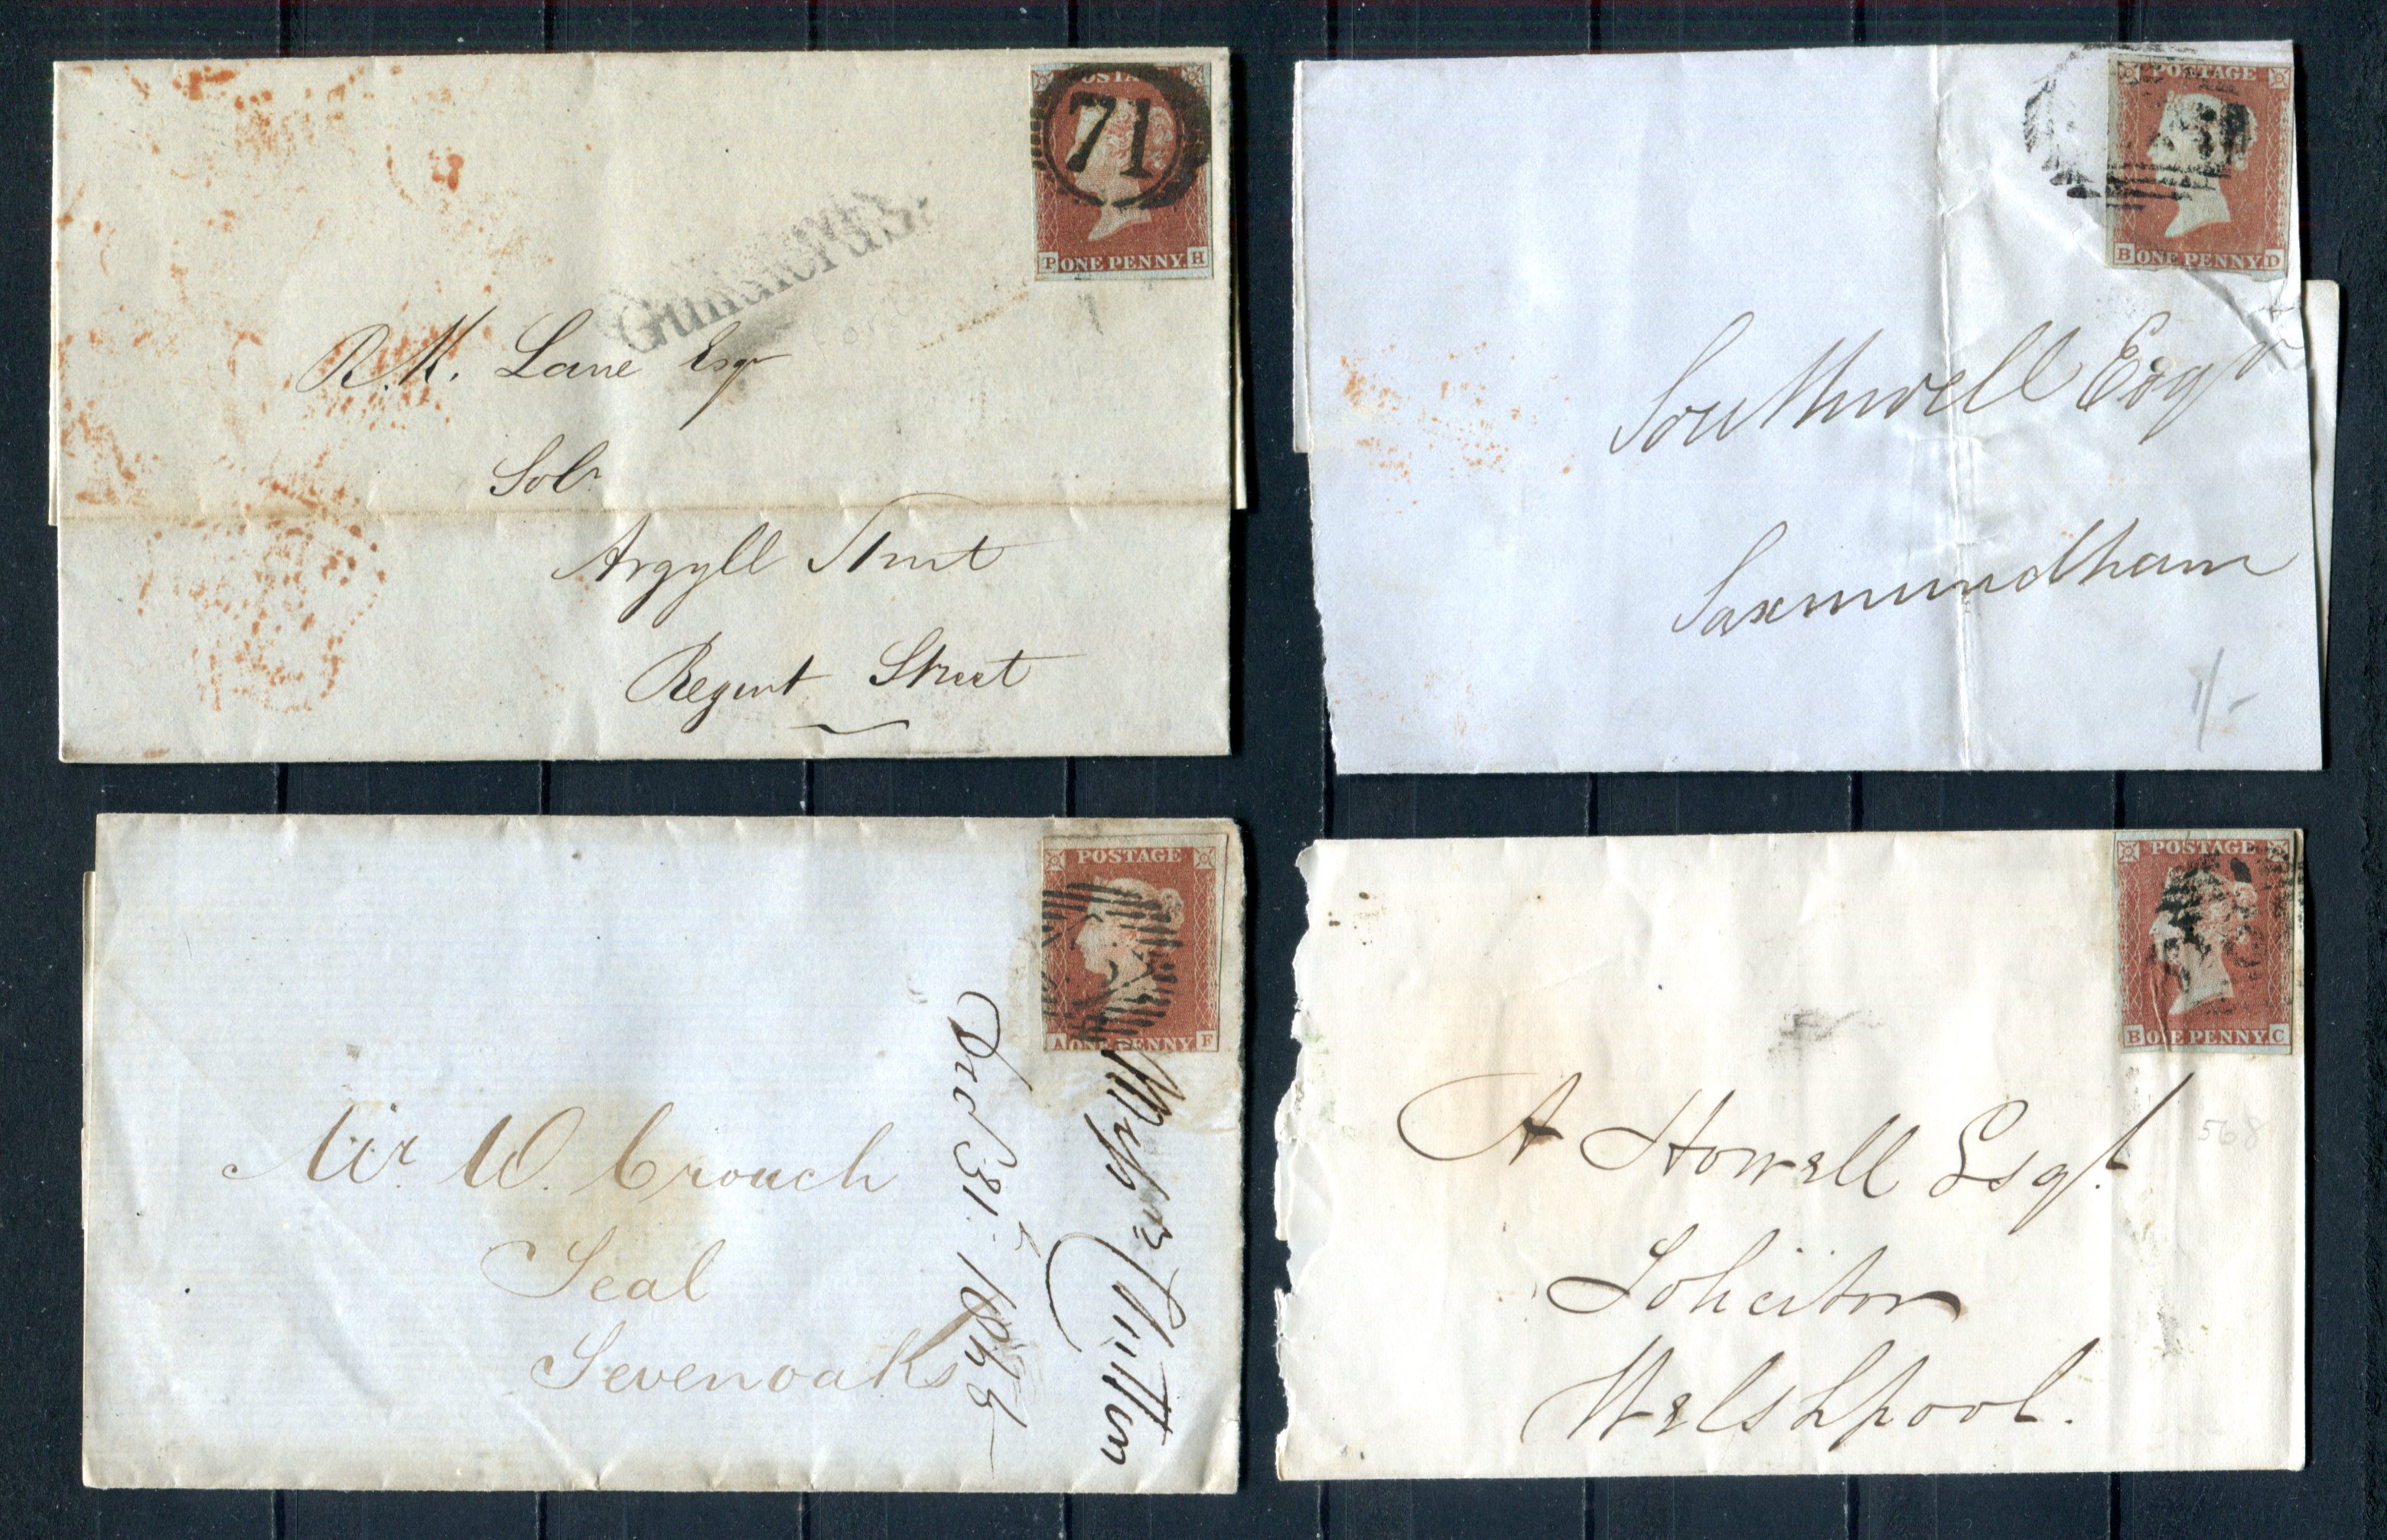 POSTAGE
71
P ONE PENNY H
R. M. Lane Esqr
Solr
Argyll Street
Regent Street
POSTAGE
B ONE PENNY D
Southwell Esqr
Saxmundham
1/-
POSTAGE
A ONE PENNY F
Mr. W. Crouch
Seal
Sevenoaks
POSTAGE
B ONE PENNY C
568
A Howell Esqr.
Solicitor
Welshpool.